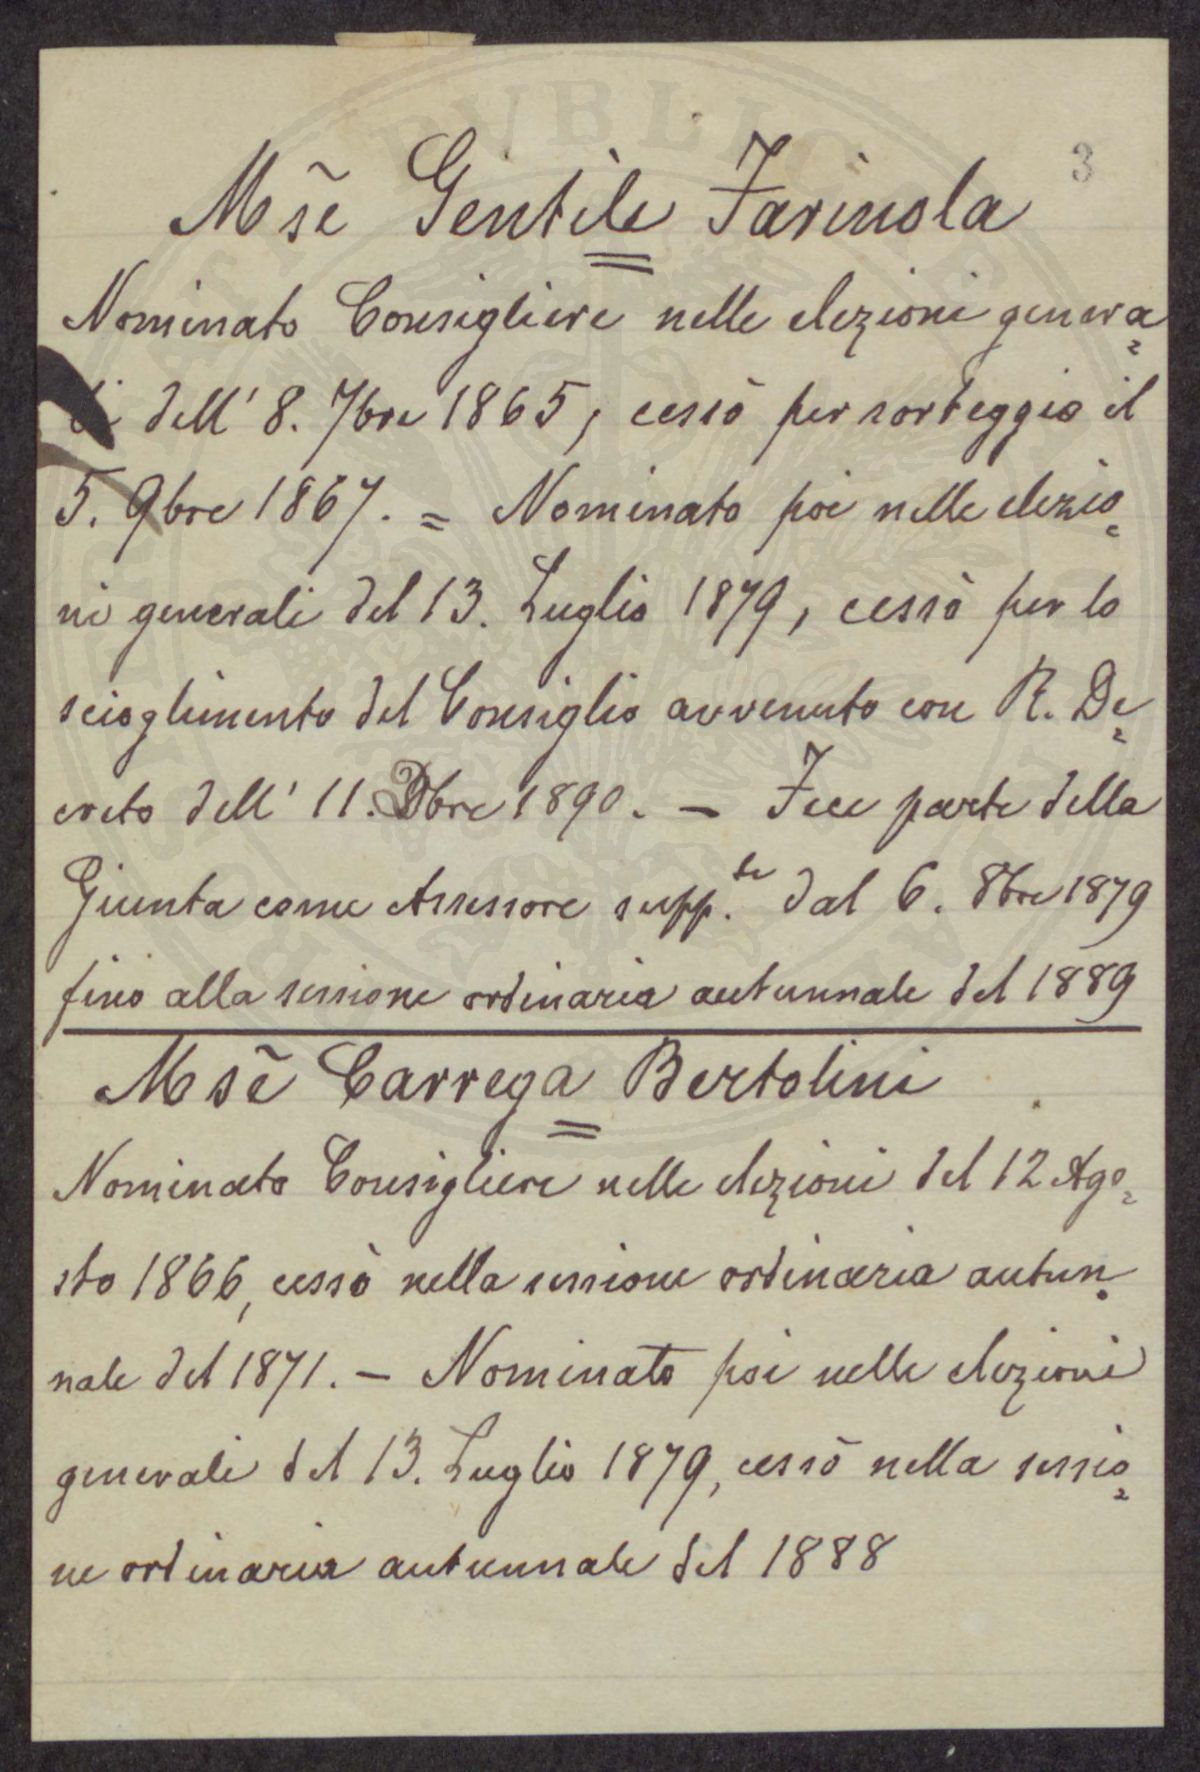 3
Msẽ Gentile Farinola
Nominato Consigliere nelle elezioni genera=
li dell' 8. 7bre 1865, cessò per sorteggio il
5. 9bre 1867. = Nominato poi nelle elezio=
ni generali del 13. Luglio 1879, cessò per lo
scioglimento del Consiglio avvenuto con R. De=
creto dell' 11. Dbre 1890. — Fece parte della
Giunta come Assessore supp.te dal 6. 8bre 1879
fino alla sessione ordinaria autunnale del 1889
Msẽ Carrega Bertolini
Nominato Consigliere nelle elezioni del 12 Ago=
sto 1866, cessò nella sessione ordinaria autun=
nale del 1871. — Nominato poi nelle elezioni
generali del 13. Luglio 1879, cessò nella sessio=
ne ordinaria autunnale del 1888